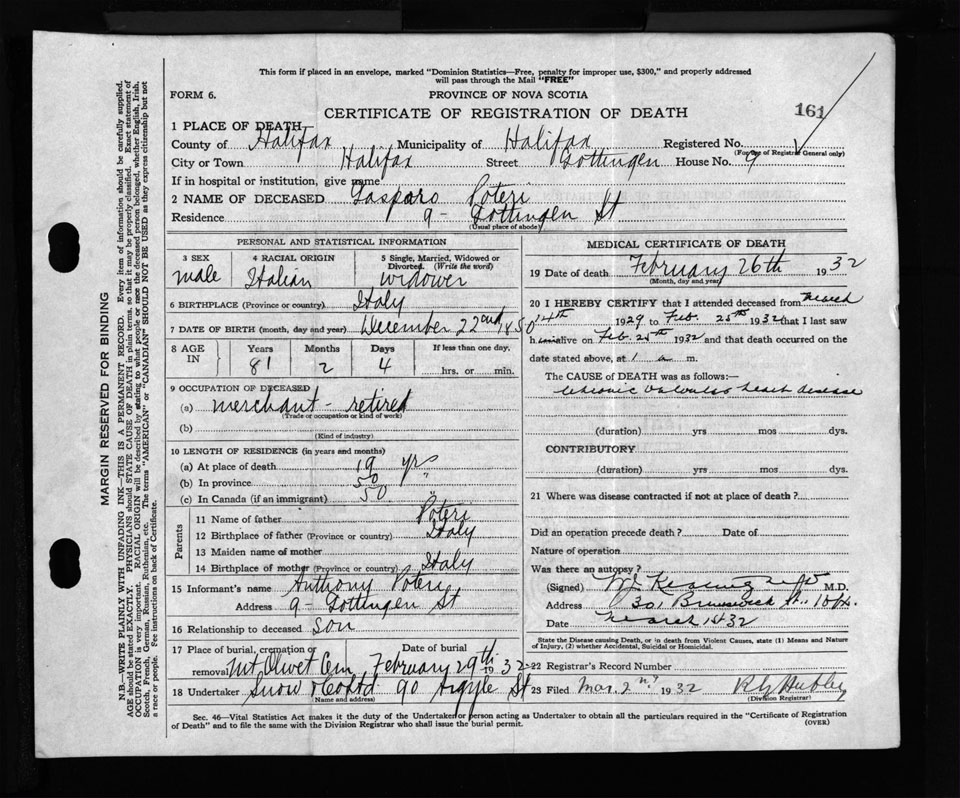 This form if placed in an envelope, marked "Dominion Statistics—Free, penalty for improper use, $300," and properly addressed
will pass through the Mail "FREE"
FORM 6.
PROVINCE OF NOVA SCOTIA
CERTIFICATE OF REGISTRATION OF DEATH
161
1 PLACE OF DEATH
County of Halifax Municipality of Halifax Registered No.
(For use of Registrar General only)
City or Town Halifax Street Gottingen House No. 9
If in hospital or institution, give name
2 NAME OF DECEASED Gasparo Poteri
Residence 9 - Gottingen St
(Usual place of abode)
PERSONAL AND STATISTICAL INFORMATION
3 SEX 4 RACIAL ORIGIN 5 Single, Married, Widowed or
Divorced. (Write the word)
male Italian widower
6 BIRTHPLACE (Province or country) Italy
7 DATE OF BIRTH (month, day and year) December 22nd 1850
8 AGE IN Years Months Days If less than one day,
81 2 4 hrs. or min.
9 OCCUPATION OF DECEASED
(a) merchant - retired
(Trade or occupation or kind of work)
(b)
(Kind of industry)
10 LENGTH OF RESIDENCE (in years and months)
(a) At place of death 19 yrs
(b) In province 50 "
(c) In Canada (if an immigrant) 50 "
Parents
11 Name of father Poteri
12 Birthplace of father (Province or country) Italy
13 Maiden name of mother
14 Birthplace of mother (Province or country) Italy
15 Informant's name Anthony Poteri
Address 9 - Gottingen St
16 Relationship to deceased son
17 Place of burial, cremation or Date of burial
removal Mt Olivet Cem February 29th 1932
18 Undertaker Snow & Co Ltd 90 Argyle St
(Name and address)
MEDICAL CERTIFICATE OF DEATH
19 Date of death February 26th 1932
(Month, day and year)
20 I HEREBY CERTIFY that I attended deceased from March
14th 1929 to Feb. 25th 1932 that I last saw
h alive on Feb. 25th 1932 and that death occurred on the
date stated above, at 1 a m.
The CAUSE of DEATH was as follows:—
Chronic Valvular heart disease
(duration) yrs mos dys.
CONTRIBUTORY
(duration) yrs mos dys.
21 Where was disease contracted if not at place of death?
Did an operation precede death? Date of
Nature of operation
Was there an autopsy?
(Signed) M.D.
Address 301 Brunswick St. Hfx.
Date March 1st 32
State the Disease causing Death, or in death from Violent Causes, state (1) Means and Nature
of Injury, (2) whether Accidental, Suicidal or Homicidal.
22 Registrar's Record Number
23 Filed Mar. 2nd 1932
(Division Registrar)
Sec. 46—Vital Statistics Act makes it the duty of the Undertaker or person acting as Undertaker to obtain all the particulars required in the "Certificate of Registration
of Death" and to file the same with the Division Registrar who shall issue the burial permit.
(OVER)
MARGIN RESERVED FOR BINDING
N.B.—WRITE PLAINLY WITH UNFADING INK—THIS IS A PERMANENT RECORD. Every item of information should be carefully supplied.
AGE should be stated EXACTLY. PHYSICIANS should STATE CAUSE OF DEATH in plain terms, so that it may be properly classified. Exact statement of
OCCUPATION is very important. RACIAL ORIGIN will be described by stating to what people or race the deceased person belonged, whether English, Irish,
Scotch, French, German, Russian, Ruthenian, etc. The terms "AMERICAN" or "CANADIAN" SHOULD NOT BE USED as they express citizenship but not
a race or people. Fee instructions on back of Certificate.